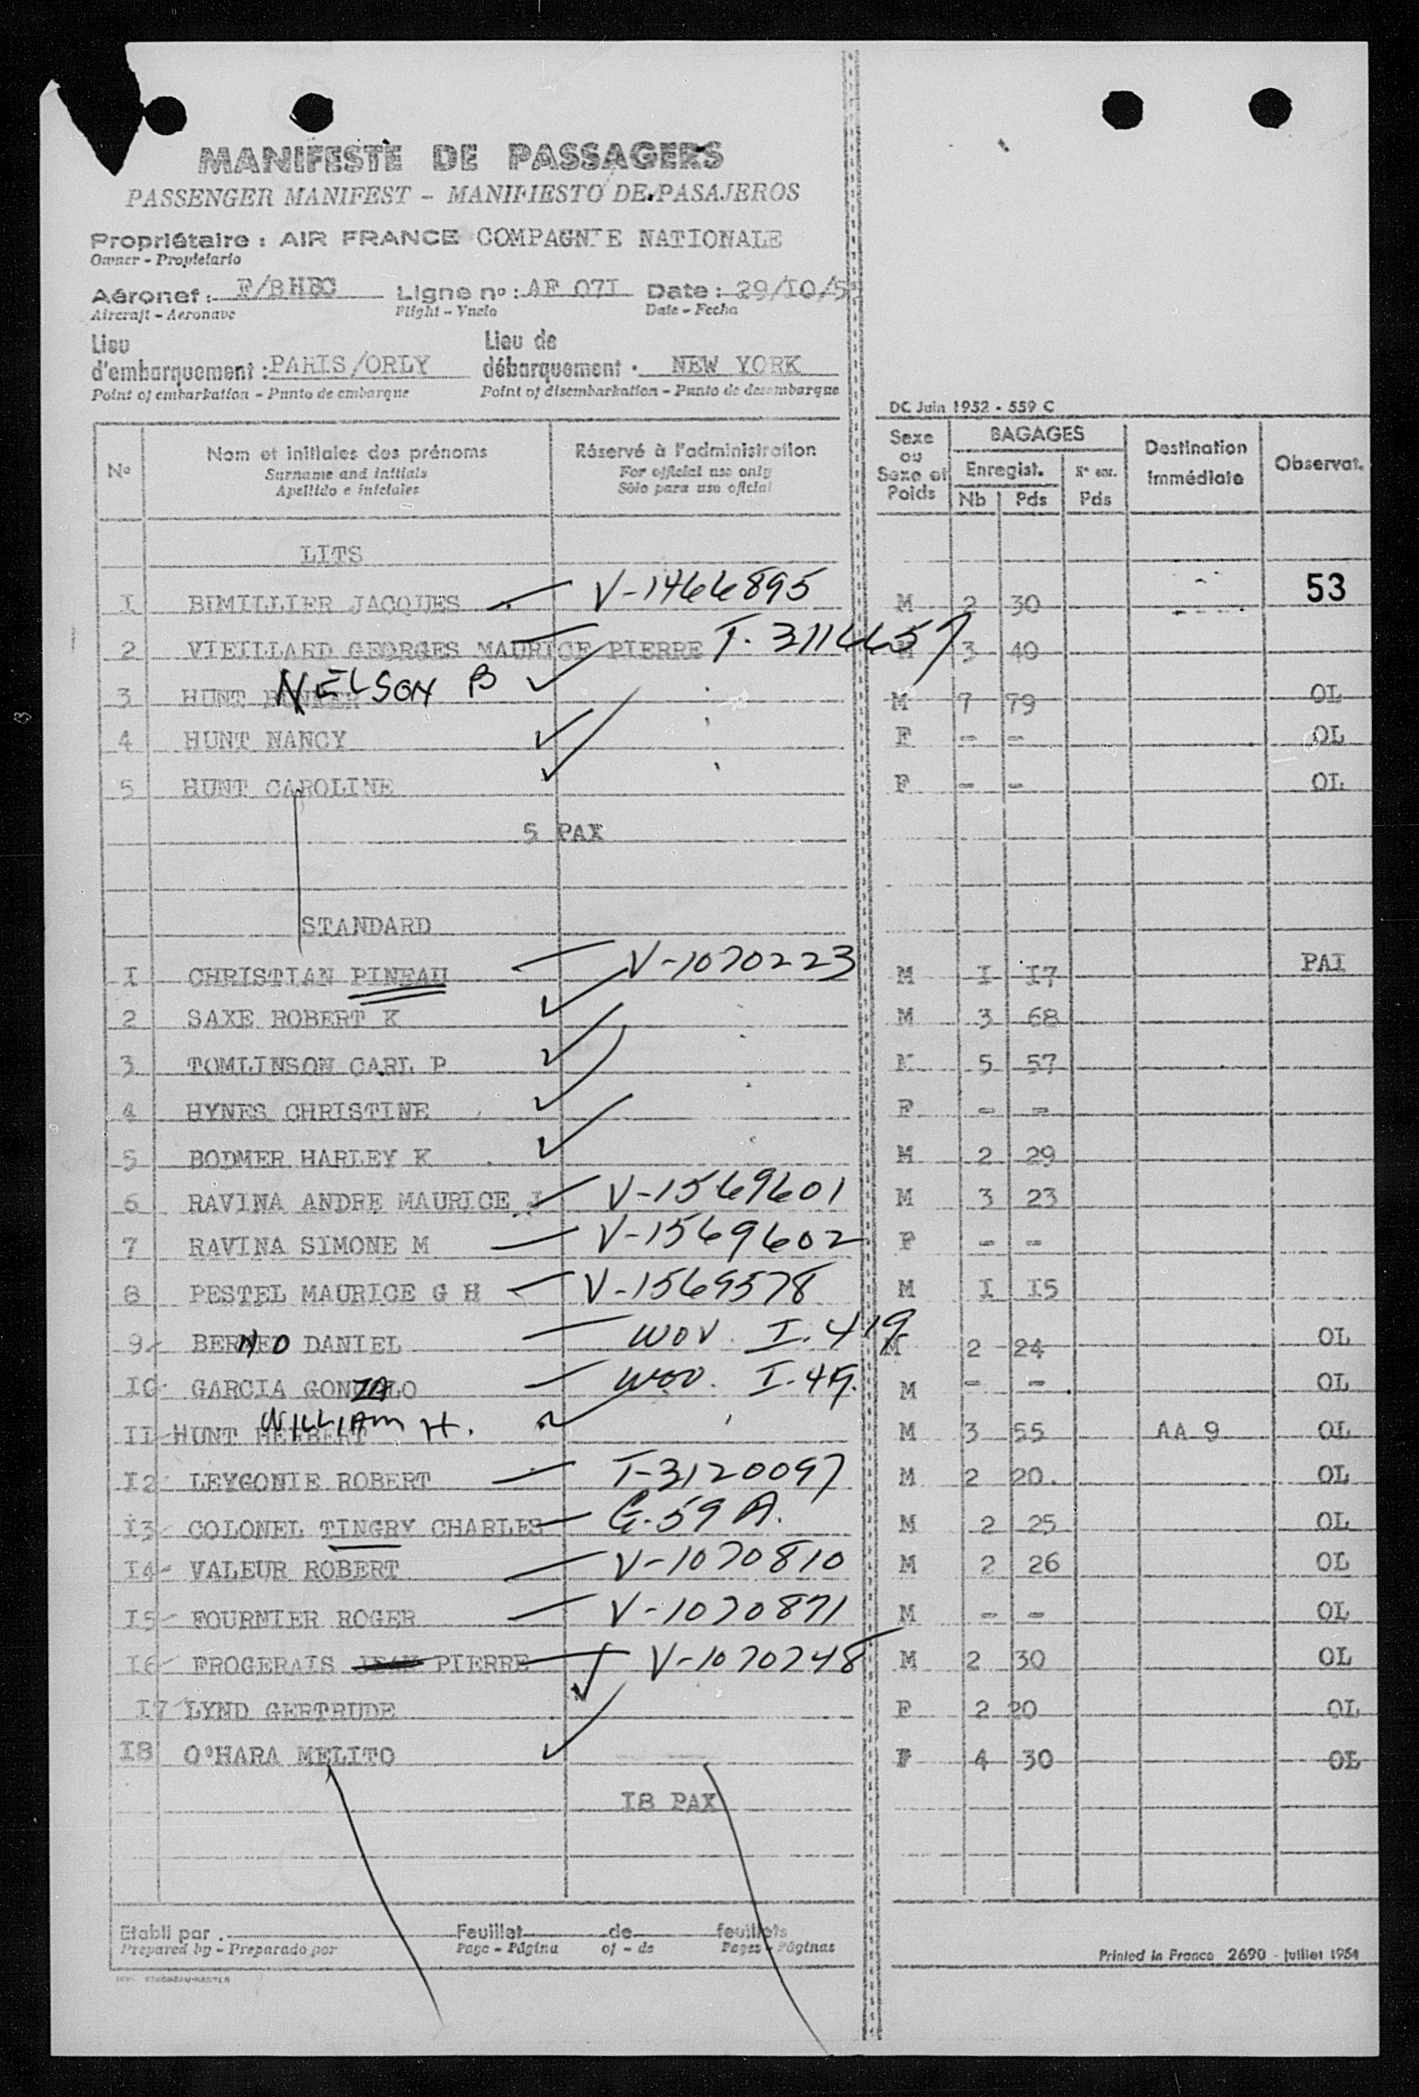 MANIFESTE DE PASSAGERS
PASSENGER MANIFEST - MANIFIESTO DE PASAJEROS
Propriétaire : AIR FRANCE COMPAGNIE NATIONALE
Owner - Propietario
Aéronef : F/BHBC Ligne no : AF 071 Date : 29/10/5
Aircraft - Aeronave Flight - Vuelo Date - Fecha
Lieu d'embarquement : PARIS/ORLY Lieu de débarquement : NEW YORK
Point of embarkation - Punto de embarque Point of disembarkation - Punto de desembarque
DC Juin 1952 - 559 C
No Nom et initiales des prénoms Réservé à l'administration Sexe ou Sexe et Poids BAGAGES Destination immédiate Observat.
Surname and initials For official use only Enregist. N enr.
Apellido e iniciales Sólo para uso oficial Nb Pds Pds
LITS
1 BIMILLIER JACQUES V-1466895 M 2 30 53
2 VIEILLARD GEORGES MAURICE PIERRE T-3114457 M 3 40
3 HUNT NELSON B M 7 79 OL
4 HUNT NANCY F - - OL
5 HUNT CAROLINE F - - OL
5 PAX
STANDARD
1 CHRISTIAN PINEAU V-1070223 M 1 17 PAI
2 SAXE ROBERT K M 3 68
3 TOMLINSON CARL P M 5 57
4 HYNES CHRISTINE F - -
5 BODMER HARLEY K M 2 29
6 RAVINA ANDRE MAURICE J V-1569601 M 3 23
7 RAVINA SIMONE M V-1569602 F - -
8 PESTEL MAURICE G H V-1569578 M 1 15
9 BERNEO DANIEL WOV. I.419 M 2 24 OL
10 GARCIA GONZALO WOV. I.419. M - - OL
11 HUNT HERBERT WILLIAM H. M 3 55 AA 9 OL
12 LEYGONIE ROBERT T-3120097 M 2 20. OL
13 COLONEL TINGRY CHARLES G-59 A. M 2 25 OL
14 VALEUR ROBERT V-1070810 M 2 26 OL
15 FOURNIER ROGER V-1070871 M - - OL
16 FROGERAIS JEAN PIERRE V-1070748 M 2 30 OL
17 LYND GERTRUDE F 2 20 OL
18 O'HARA MELITO F 4 30 OL
18 PAX
Etabli par Feuillet de feuillets
Prepared by - Preparado por Page - Página of - de Pages - Páginas
Printed in France 2690 - Juillet 1954